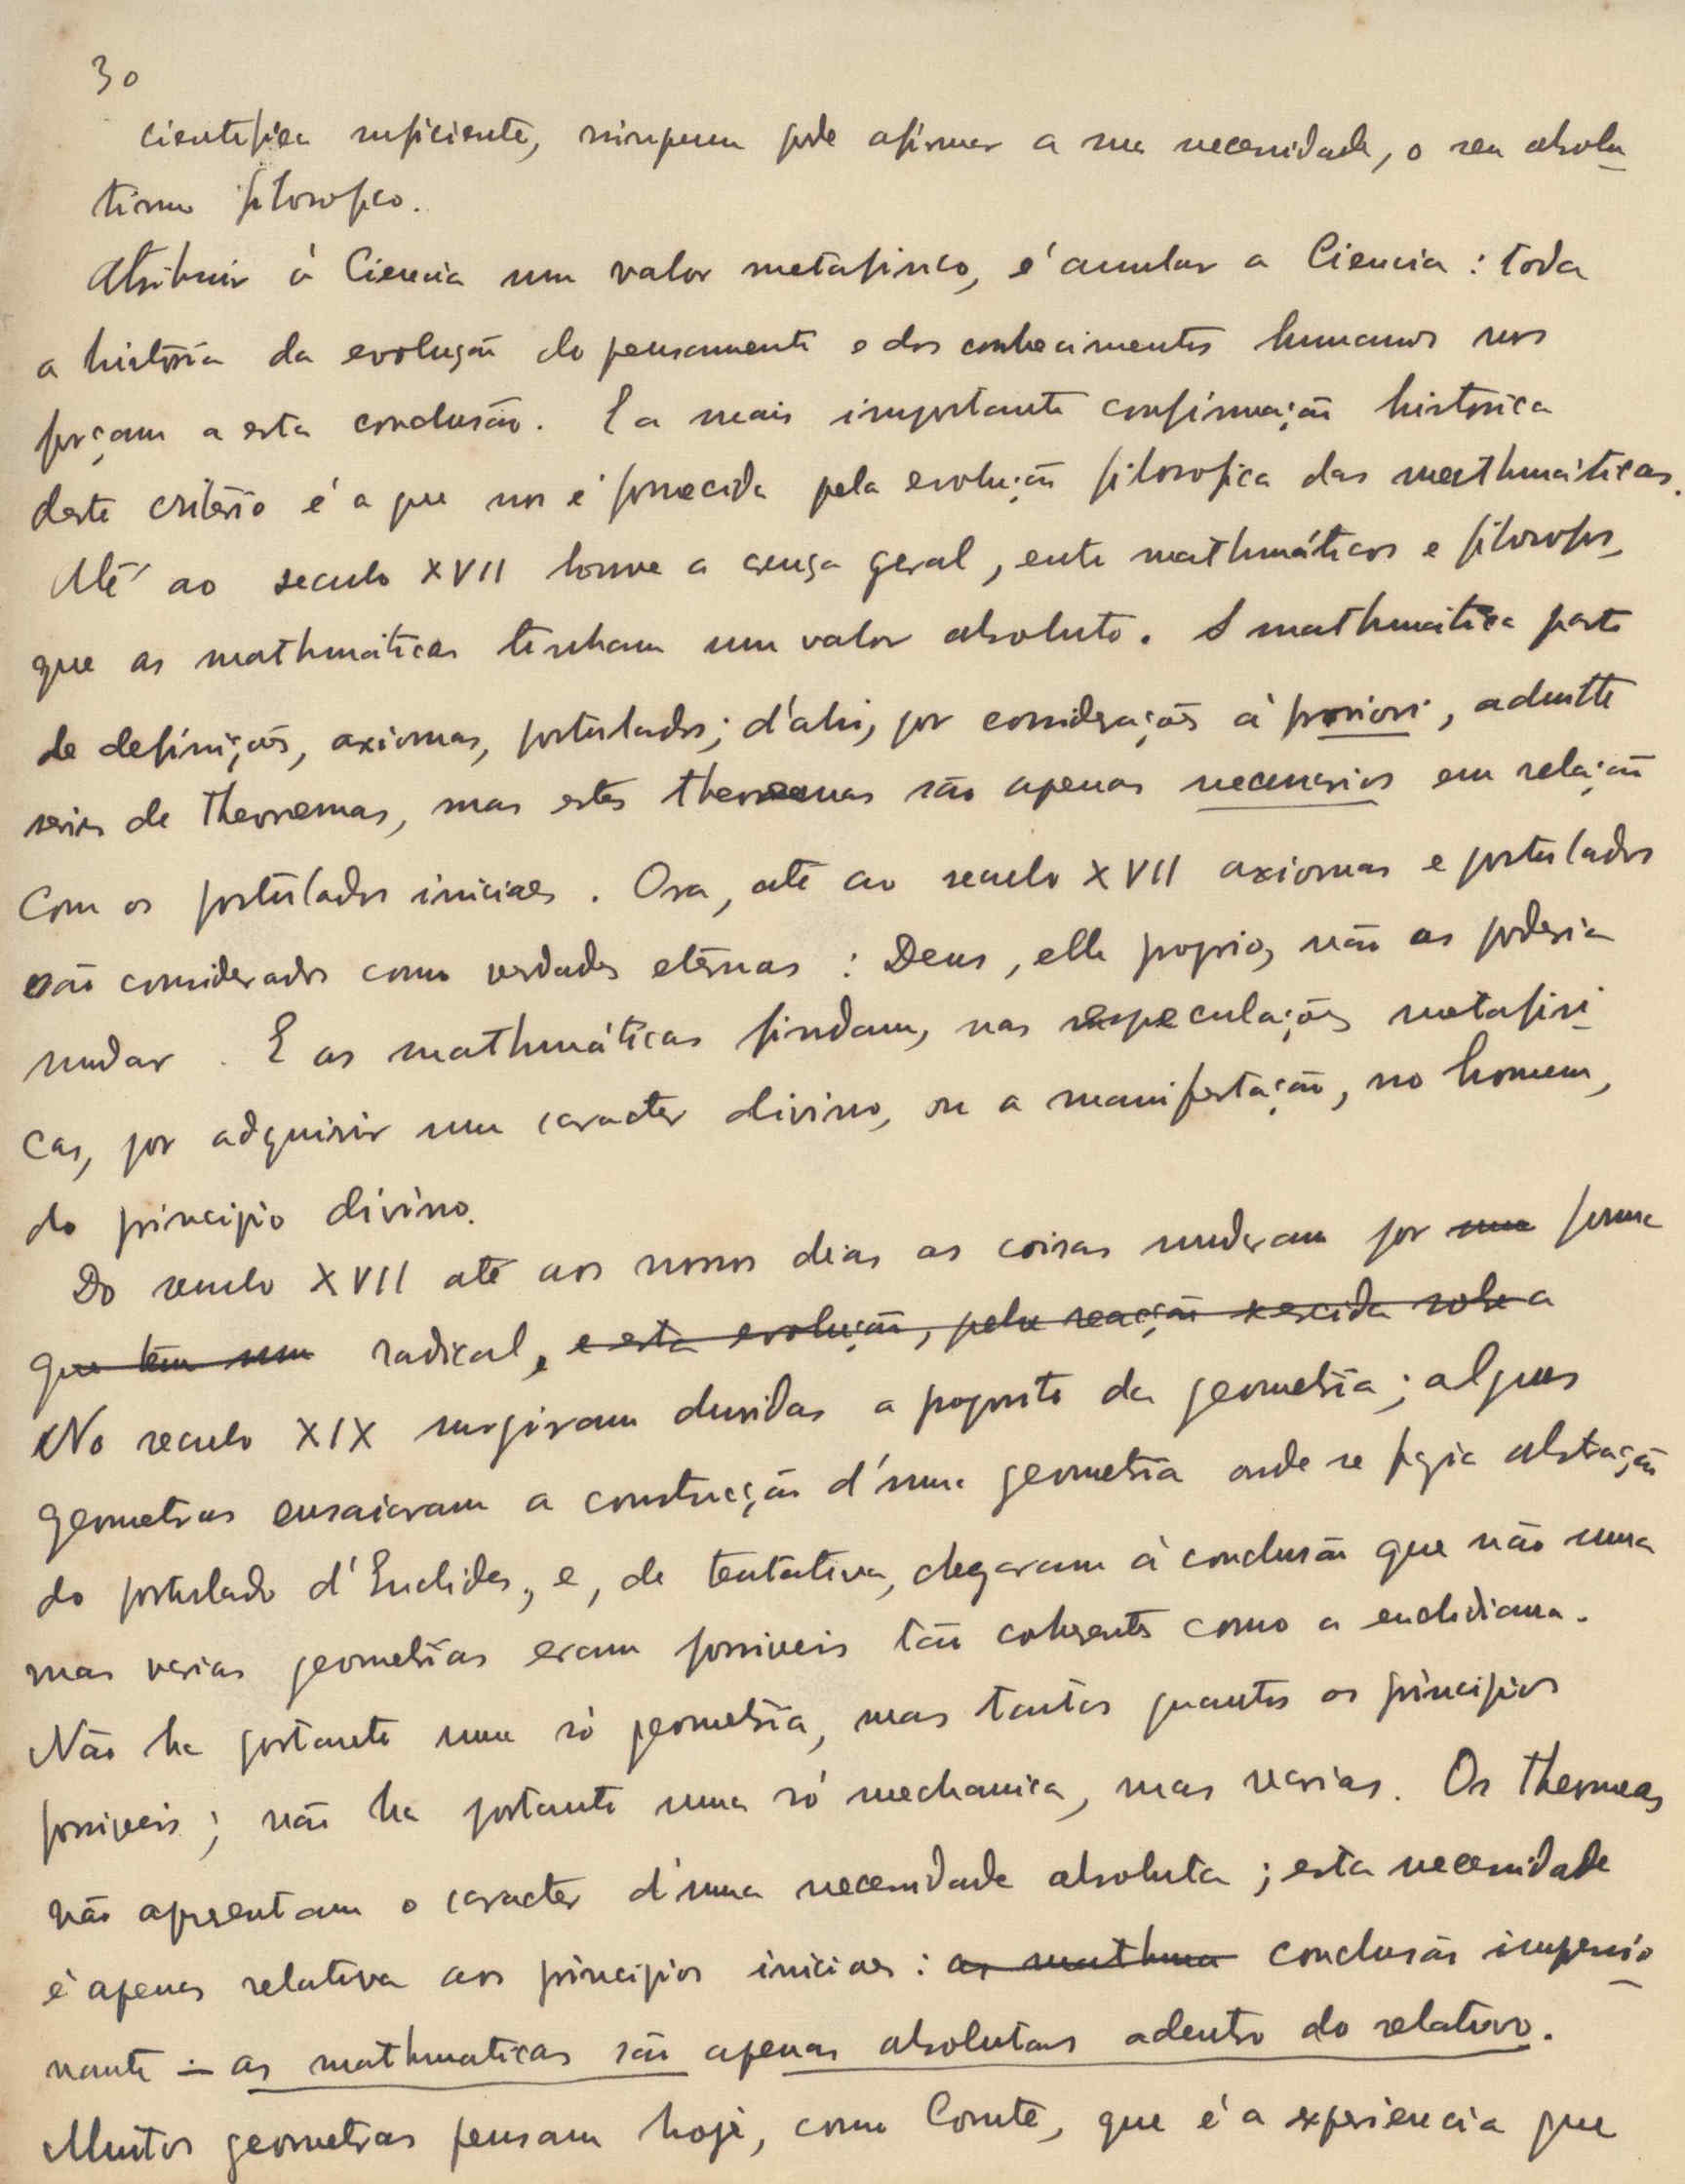 30
cientifica suficiente, ninguem pode afirmar a sua necessidade, o seu absolu-
tismo filosofico.
Atribuir á Ciencia um valor metafisico, é anular a Ciencia : toda
a história da evolução do pensamento e dos conhecimentos humanos nos
forçam a esta conclusão. E a mais importante confirmação historica
deste critério é a que nos é fornecida pela evolução filosofica das mathmáticas.
Até ao seculo XVII houve a crença geral, entre mathmáticos e filosofos,
que as mathmáticas tinham um valor absoluto. A mathmática parte
de definições, axiomas, postulados; d'ahi, por considerações á priori, admitte
series de theoremas, mas estes theoremas são apenas necessarios em relação
com os postulados iniciaes. Ora, até ao seculo XVII axiomas e postulados
são considerados como verdades eternas : Deus, elle proprio, não as poderia
mudar. E as mathmáticas findam, nas especulações metafisi-
cas, por adquirir um caracter divino, ou a manifestação, no homem,
do principio divino.
Do seculo XVII até aos nossos dias as coisas mudaram por uma forma
que tem um radical, e esta evolução, pela reacção exercida sobre a
No seculo XIX surgiram duvidas a proposito da geometria; alguns
geometras ensaiaram a construcção d'uma geometria onde se fazia abstração
do postulado d'Euclides, e, de tentativa, chegaram á conclusão que não uma
mas varias geometrias eram possiveis tão coherentes como a euclidiana.
Não ha portanto uma só geometria, mas tantas quantos os principios
possiveis; não ha portanto uma só mechanica, mas varias. Os theoremas
não apresentam o caracter d'uma necessidade absoluta; esta necessidade
é apenas relativa aos principios iniciaes : as mathma conclusão impressio-
nante - as mathmaticas são apenas absolutas adentro do relativo.
Muitos geometras pensam hoje, como Comte, que é a experiencia que